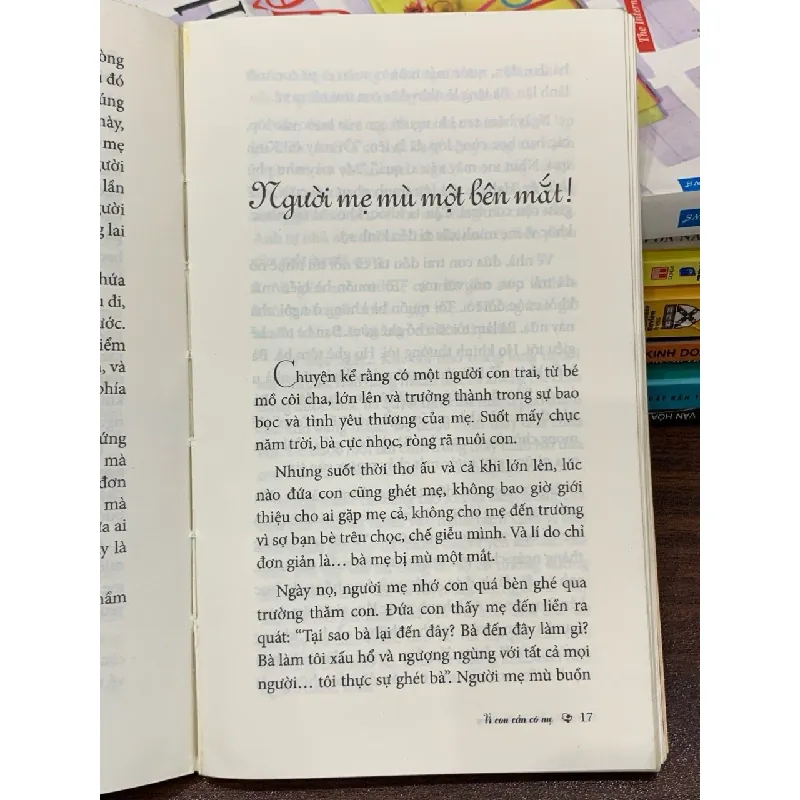 òng
đó
úng
này,
mẹ
gười
lần
gười
g lai
hứa
đi,
ước.
iểm
, và
phía
ứng
mà
đơn
mà
ra ai
y là
hầm
Người mẹ mù một bên mắt!
Chuyện kể rằng có một người con trai, từ bé
mồ côi cha, lớn lên và trưởng thành trong sự bao
bọc và tình yêu thương của mẹ. Suốt mấy chục
năm trời, bà cực nhọc, ròng rã nuôi con.
Nhưng suốt thời thơ ấu và cả khi lớn lên, lúc
nào đứa con cũng ghét mẹ, không bao giờ giới
thiệu cho ai gặp mẹ cả, không cho mẹ đến trường
vì sợ bạn bè trêu chọc, chế giễu mình. Và lí do chỉ
đơn giản là… bà mẹ bị mù một mắt.
Ngày nọ, người mẹ nhớ con quá bèn ghé qua
trường thăm con. Đứa con thấy mẹ đến liền ra
quát: "Tại sao bà lại đến đây? Bà đến đây làm gì?
Bà làm tôi xấu hổ và ngượng ngùng với tất cả mọi
người… tôi thực sự ghét bà". Người mẹ mù buồn
Vì con cần có mẹ 17
The Intern
KINH DO
VĂN HÓA